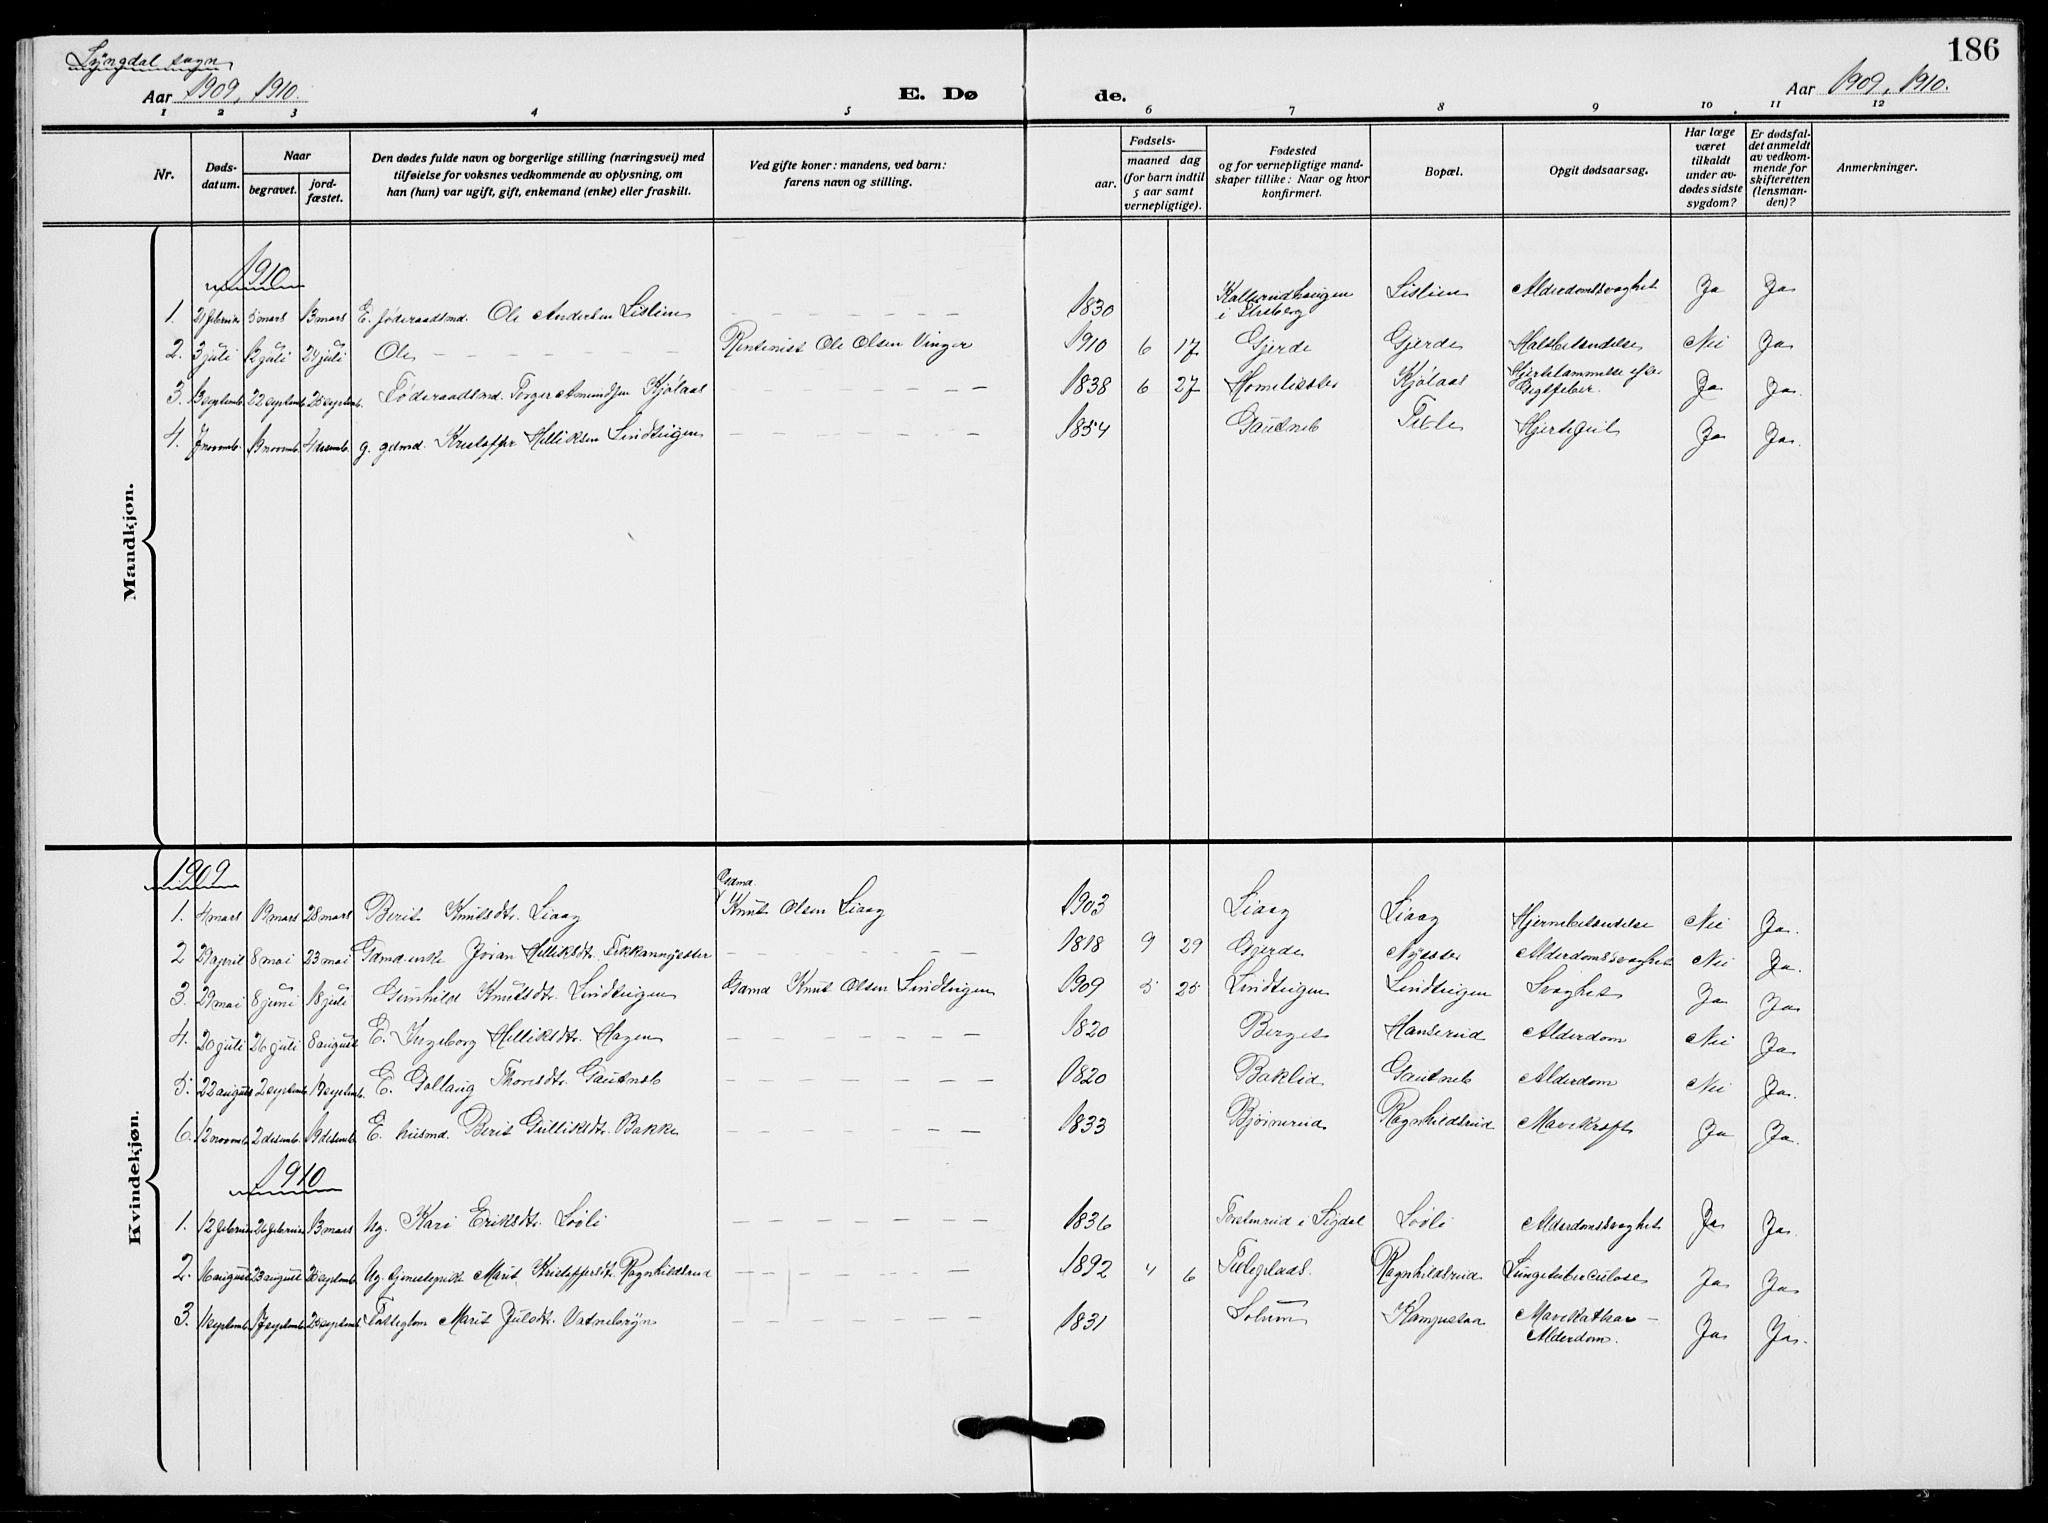 Lyngdal sogn
186
Aar 1909, 1910.
E. Dø
de.
Aar 1909, 1910.
1 2 3 4 5 6 7 8 9 10 11 12
Nr.
Døds-datum.
Naar
begravet.
jord-fæstet.
Den dødes fulde navn og borgerlige stilling (næringsvei) med
tilføielse for voksnes vedkommende av oplysning, om
han (hun) var ugift, gift, enkemand (enke) eller fraskilt.
Ved gifte koner: mandens, ved barn:
farens navn og stilling.
Fødsels-
aar.
maaned dag
(for barn indtil
5 aar samt
vernepligtige).
Fødested
og for vernepligtige mand-
skaper tillike: Naar og hvor
konfirmert.
Bopæl.
Opgit dødsaarsag.
Har læge
været
tilkaldt
under av-
dødes sidste
sygdom?
Er dødsfal-
det anmeldt
av vedkom-
mende for
skifteretten
(lensman-
den)?
Anmerkninger.
Mandkjøn.
1910
1. 21 februar 5 mars 13 mars E. føderaadsmd. Ole Andersen Lislien 1830 i Lislien Alderdomssvaghet Ja Ja
2. 3 juli 12 juli 24 juli Ole Rentenist Ole Olsen Vinger 1910 6 17 Gjerde Gjerde Halsbetændelse Nei Ja
3. 13 septemb. 22 septemb. 25 septemb. Føderaadsmd. Torger Amundsen Kjølaas 1838 6 27 Kjølaas Hjertelammelse efter Gigtfeber. Ja Ja.
4. 7 novmb. 13 novmb. 4 desemb. g. gdmd. Kristoffer Helliksen Lindteigen 1854 Gautneb Hjertefeil Ja Ja.
Kvindekjøn.
1909
1. 4 mars 19 mars 28 mars Berit Knutsdtr. Liaag Gdmd. Knut Olsen Liaag 1903 Liaag Liaag Hjernebetændelse Nei Ja.
2 29 april 8 mai 23 mai Gdmd.enke Jøran Helliksdtr. 1818 9 29 Gjerde Alderdomssvaghet Nei Ja.
3. 29 mai 8 juni 18 juli Gunhild Knutsdtr. Lindteigen Gdmd Knut Olsen Lindteigen 1909 5 25 Lindteigen Lindteigen Svaghet Ja Ja
4. 20 juli 26 juli 8 august E. Ingeborg Helliksdtr. Hagen 1820 Berget Hanserud Alderdom Nei Ja
5. 22 august 2 septemb. 19 septemb. E. Gollaug Thoresdtr. Gautneb 1820 Baklid Gautneb Alderdom Nei Ja.
6. 12 novmb. 2 desemb. 19 desemb. E. husmd. Berit Gulliksdtr. Bakke 1833 Bjørnerud Ragnhildsrud Mavekræft Ja Ja.
1910
1. 12 februar 26 februar 13 mars Kari Eriksdtr. Loøli 1836 i Sigdal Loøli Alderdomssvaghet Ja Ja.
2. 16 august 23 august 25 septemb. Ug. tjenestepike Marit Kristoffersdtr. Ragnhildsrud 1892 4 6 Ragnhildsrud Lungetuberculose Ja Ja
3. 11 septemb. 17 septemb. 25 septemb. Fattiglem Marit Julsdtr. Vatnebryn 1831 Solum Mavekathar – Alderdom. Ja Ja.